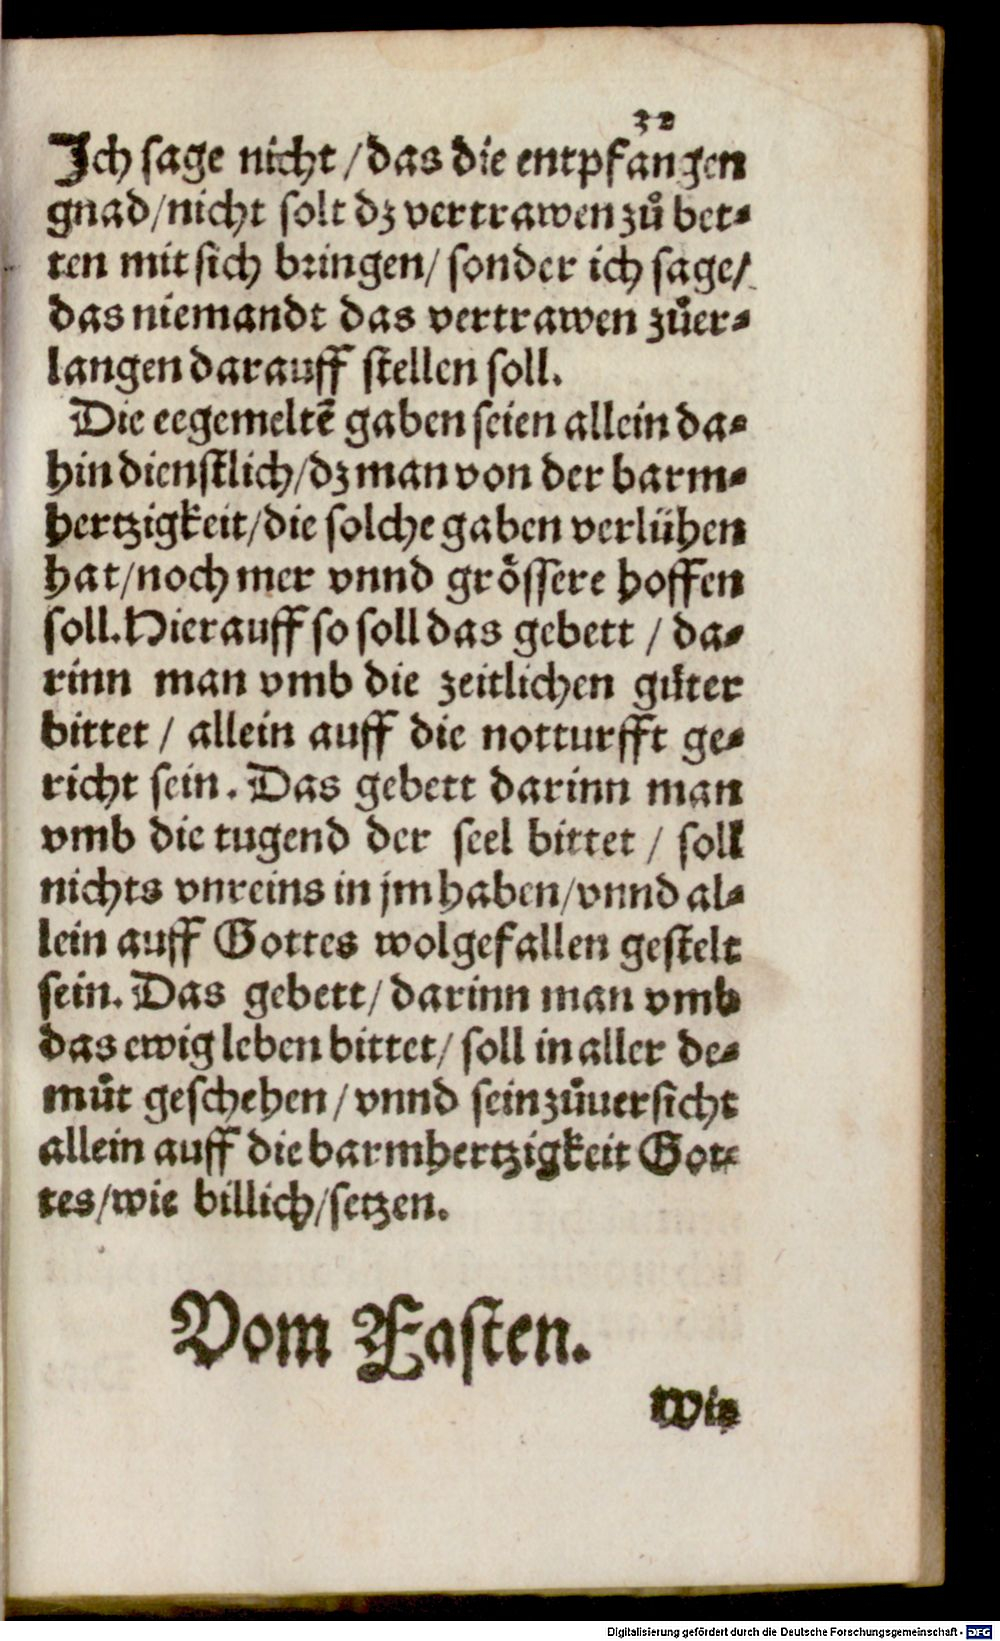 32
Ich sage nicht / das die entpfangen
gnad/nicht solt dz vertrawen zů bet⸗
ten mit sich bringen/ sonder ich sage/
das niemandt das vertrawen zůer⸗
langen darauff stellen soll.
Die eegemeltē gaben seien allein da⸗
hin dienstlich/dz man von der barm⸗
hertzigkeit/die solche gaben verlühen
hat/noch mer vnnd grössere hoffen
soll. Hierauff so soll das gebett / da⸗
rinn man vmb die zeitlichen gůter
bittet / allein auff die notturfft ge⸗
richt sein. Das gebett darinn man
vmb die tugend der seel bittet / soll
nichts vnreins in jm haben/vnnd al⸗
lein auff Gottes wolgefallen gestelt
sein. Das gebett/ darinn man vmb
das ewig leben bittet/ soll in aller de⸗
můt geschehen / vnnd sein zůuersicht
allein auff die barmhertzigkeit Got⸗
tes/wie billich/setzen.
Vom Fasten.
Wir
Digitalisierung gefördert durch die Deutsche Forschungsgemeinschaft - DFG